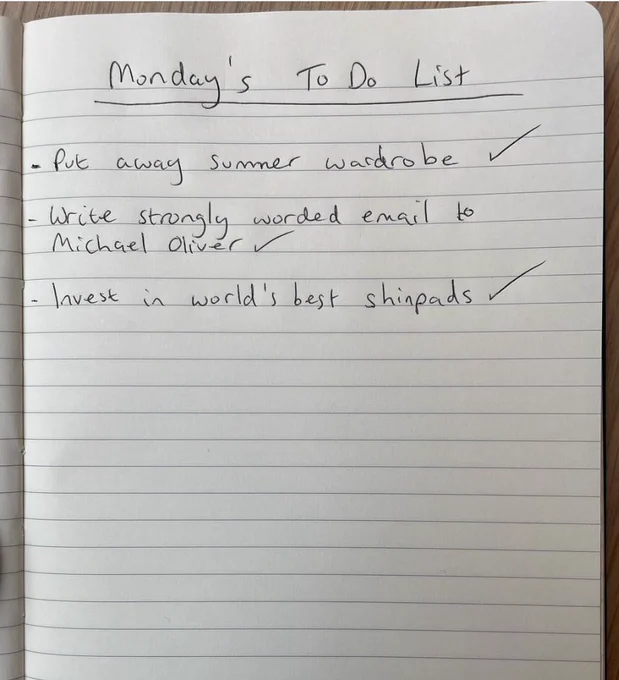 Monday's To Do List
- Put away summer wardrobe ✓
- Write strongly worded email to
Michael Oliver ✓
- Invest in world's best shinpads ✓